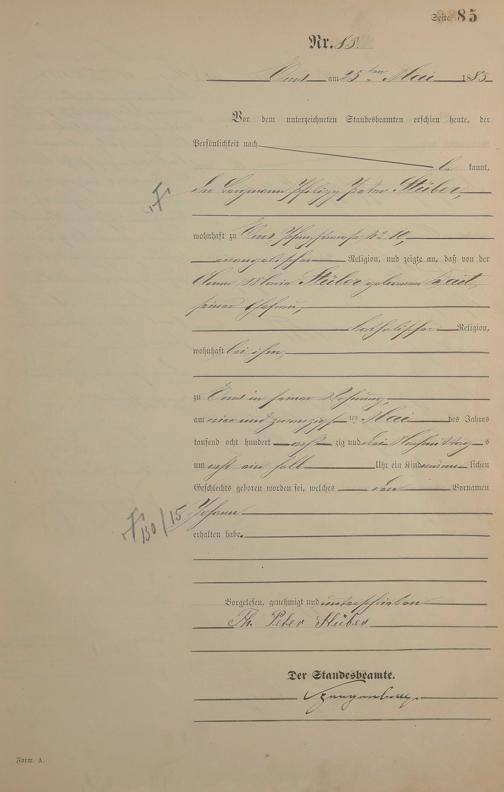 Seite 85
Nr. 85.
Ems am 25 ten Mai 1883
Vor dem unterzeichneten Standesbeamten erschien heute, der
Persönlichkeit nach
be kannt,
der Bergmann Philipp Peter Stüber,
wohnhaft zu Ems No 10,
evangelischer Religion, und zeigte an, daß von der
Anna Maria Stüber geborenen
seiner Ehefrau,
katholischer Religion,
wohnhaft bei ihm,
zu Ems in seiner Wohnung,
am vier und zwanzigsten Mai des Jahres
tausend acht hundert acht zig und drei Nachmittags
um acht ein halb Uhr ein Kind männ lichen
Geschlechts geboren worden sei, welches den Vornamen
Johann
130/15
erhalten habe.
Vorgelesen, genehmigt und unterschrieben
Ph. Peter Stüber
Der Standesbeamte.
Form. A.